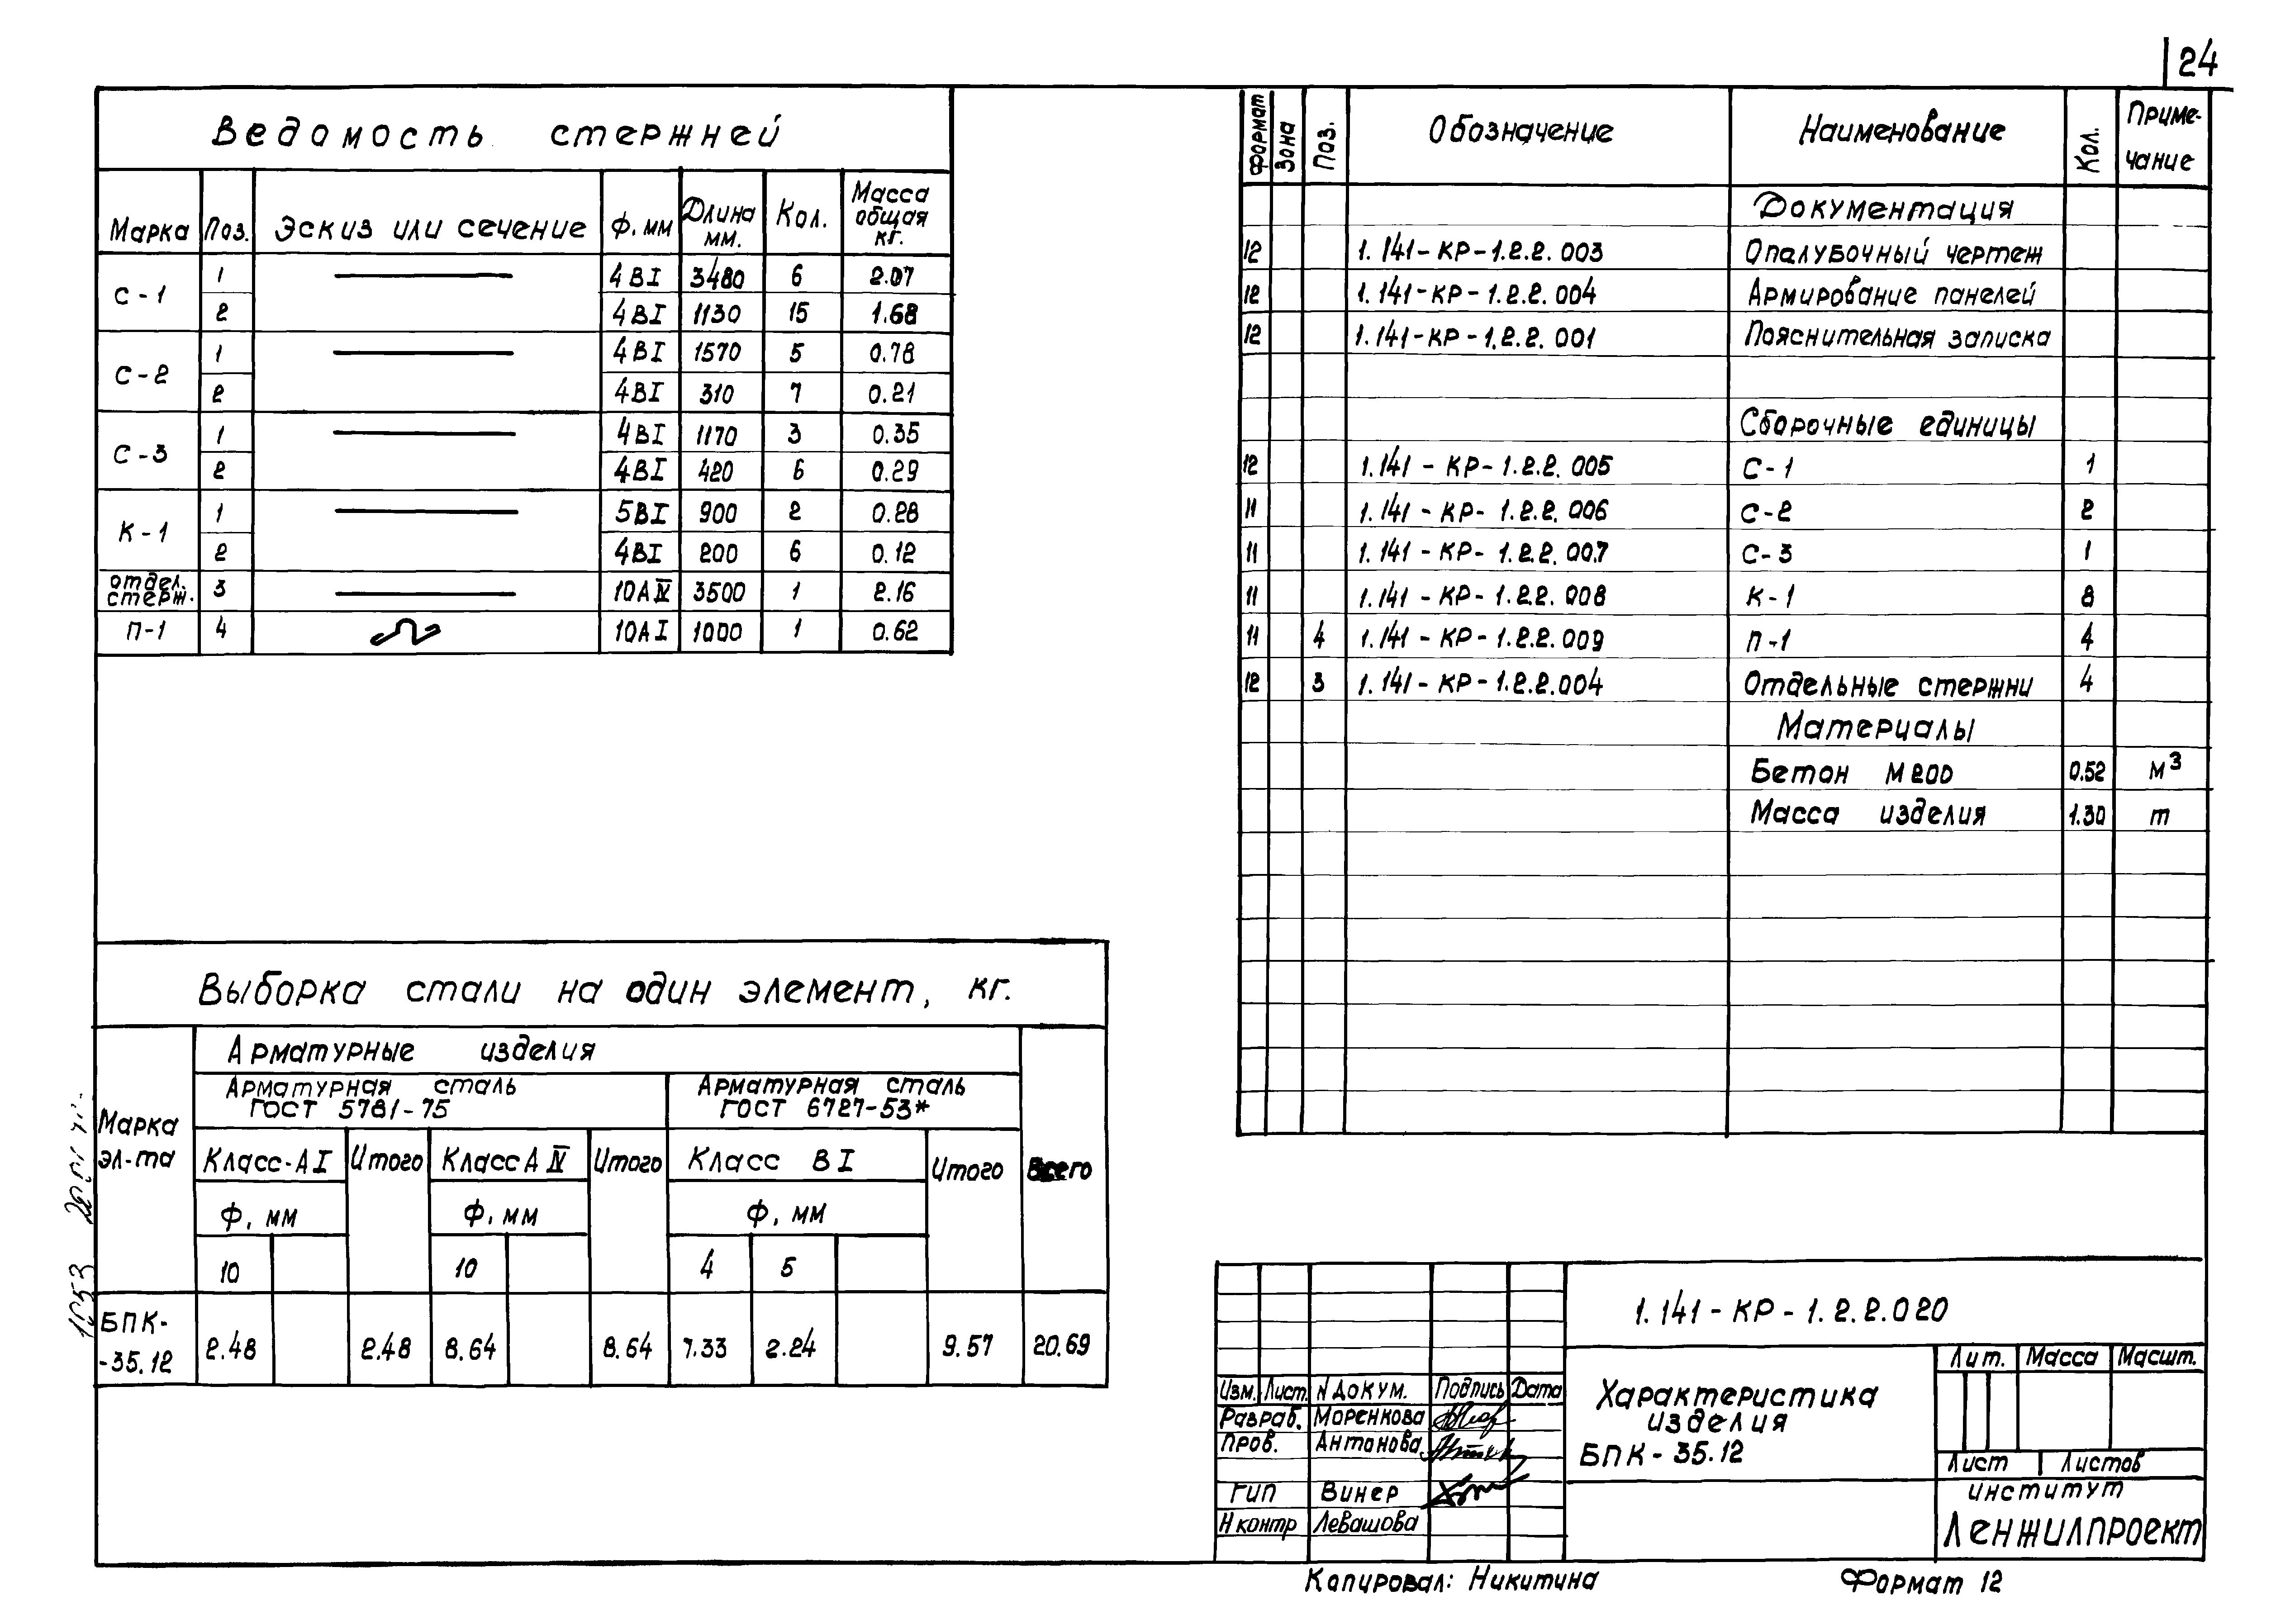 24
Ведомость стержней
Марка Поз. Эскиз или сечение Ф, мм Длина мм. Кол. Масса общая кг.
С-1 1 4ВI 3480 6 2.07
2 4ВI 1130 15 1.68
С-2 1 4ВI 1570 5 0.78
2 4ВI 310 7 0.21
С-3 1 4ВI 1170 3 0.35
2 4ВI 420 6 0.29
К-1 1 5ВI 900 2 0.28
2 4ВI 200 6 0.12
отдел. стерж. 3 10АIV 3500 1 2.16
П-1 4 10АI 1000 1 0.62
Формат Зона Поз. Обозначение Наименование Кол. Приме-чание
Документация
12 1.141-КР-1.2.2.003 Опалубочный чертеж
12 1.141-КР-1.2.2.004 Армирование панелей
12 1.141-КР-1.2.2.001 Пояснительная записка
Сборочные единицы
12 1.141-КР-1.2.2.005 С-1 1
11 1.141-КР-1.2.2.006 С-2 2
11 1.141-КР-1.2.2.007 С-3 1
11 1.141-КР-1.2.2.008 К-1 8
11 4 1.141-КР-1.2.2.009 П-1 4
12 3 1.141-КР-1.2.2.004 Отдельные стержни 4
Материалы
Бетон М200 0.52 м³
Масса изделия 1.30 т
Выборка стали на один элемент, кг.
Марка эл-та
Арматурные изделия
Арматурная сталь ГОСТ 5781-75
Арматурная сталь ГОСТ 6727-53*
Класс-АI Итого Класс АIV Итого Класс ВI Итого Всего
Ф, мм Ф, мм Ф, мм
10 10 4 5
БПК-
-35.12 2.48 2.48 8.64 8.64 7.33 2.24 9.57 20.69
1053
1.141-КР-1.2.2.020
Изм. Лист. N Докум. Подпись Дата
Разраб. Маренкова
Пров. Антонова
ГИП Винер
Н контр Левашова
Характеристика
изделия
БПК-35.12
Лит. Масса Масшт.
Лист Листов
институт
Ленжилпроект
Копировал: Никитина
Формат 12